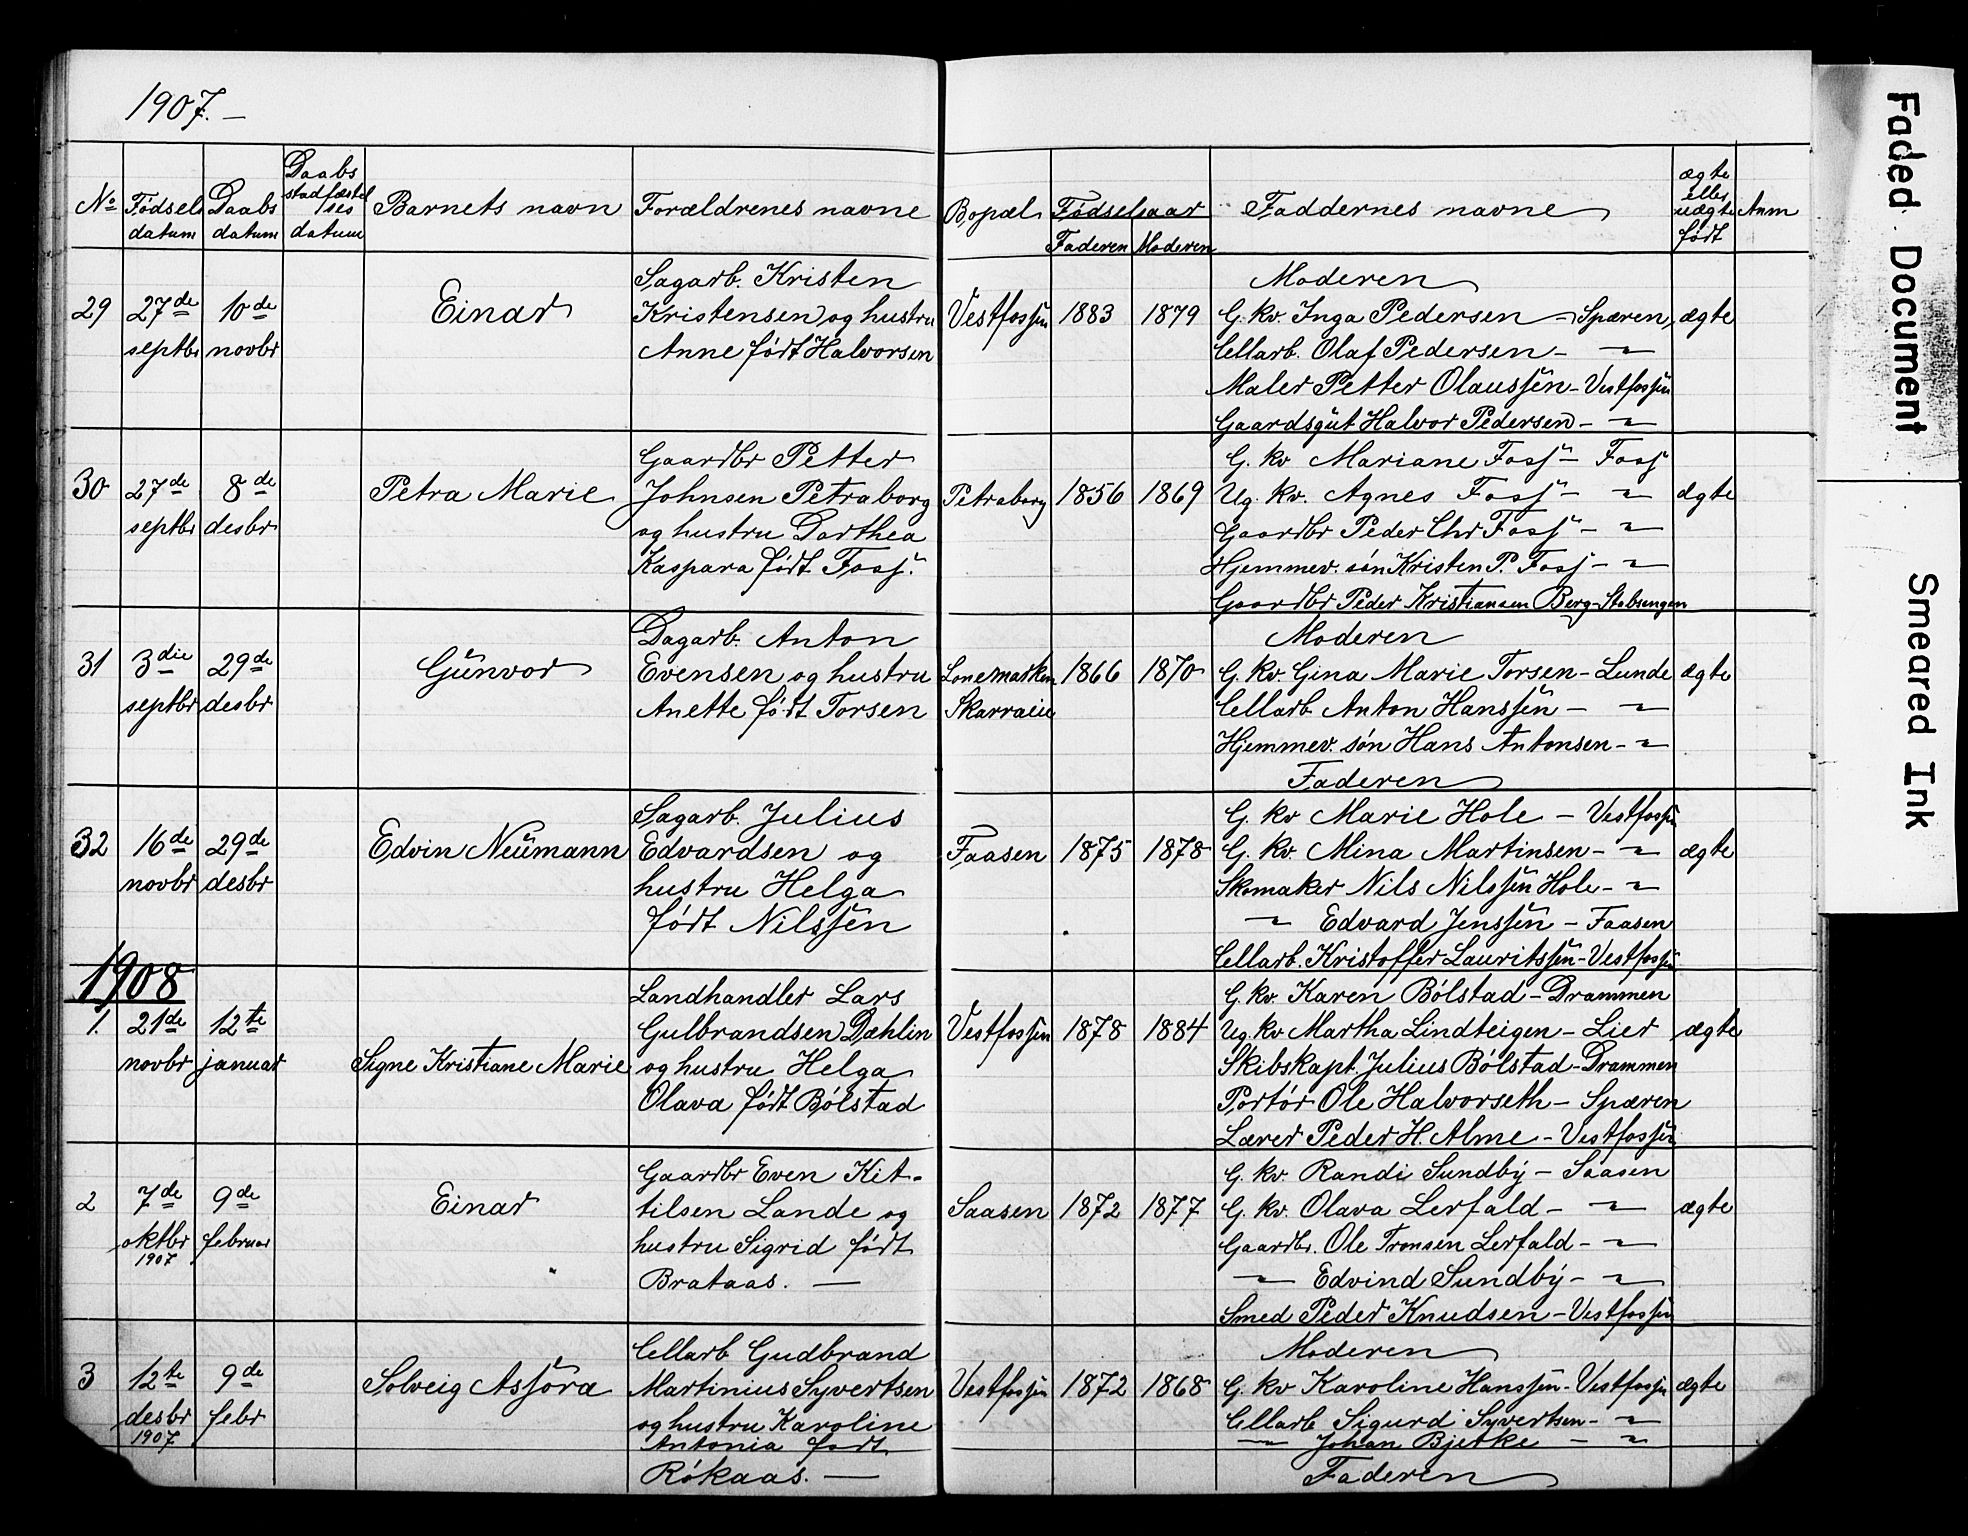 1907. —
No Fødsels datum Daabs datum Daabs stadfæstelses datum Barnets navn Forældrenes navne Bopæl Fødselsaar Faderen Moderen Faddernes navne ægte eller uægte født Anm
29 27de septbr 10de novbr Einar
Sagarb. Kristen
Kristensen og hustru
Anne født Halvorsen
Vestfossen 1883 1879
Moderen
G. kv. Inga Pedersen – Spæren
Cellarb. Olaf Pedersen – "
Maler Petter Olaussen – Vestfossen
Gaardsgut Halvor Pedersen – "
ægte
30 27de septbr 8de desbr Petra Marie
Gaardbr Petter
Johnsen Petraborg
og hustru Dorthea
Kaspara født Foss.
Petraborg 1856 1869
G. kv Mariane Foss – Foss
Ug. kv. Agnes Foss – "
Gaardbr Peder Chr Foss – "
Hjemmev. søn Kristen P. Foss – "
Gaardbr Peder Kristiansen Berg – Stabsengen
ægte
31 3die septbr 29de desbr Gunvor
Dagarb. Anton
Evensen og hustru
Anette født Torsen
Lonemarken
Skarraeie
1866 1870
Moderen
G. kv. Gina Marie Torsen – Lunde
Cellarb Anton Hanssen – "
Hjemmev. søn Hans Antonsen – "
Faderen
ægte
32 16de novbr 29de desbr Edvin Neumann
Sagarb. Julius
Edvardsen og
hustru Helga
født Nilssen
Faasen 1875 1878
G. kv Marie Hole – Vestfossen
G. kv. Mina Martinsen – "
Skomaker Nils Nilssen Hole – "
" Edvard Jenssen – Faasen
Cellarb. Kristoffer Lauritssen – Vestfossen
ægte
1908
1. 21de novbr 12te januar Signe Kristiane Marie
Landhandler Lars
Gulbrandsen Dæhlin
og hustru Helga
Olava født Bølstad
Vestfossen 1878 1884
G. kv. Karen Bølstad – Drammen
Ug. kv Martha Lindteigen – Lier
Skibskapt. Julius Bølstad – Drammen
Portør Ole Halvorseth – Spæren
Lærer Peder H. Alme – Vestfossen
ægte
2 7de oktbr 1907 9de februar Einar
Gaardbr Even Kit-
tilsen Lande og
hustru Sigrid født
Brataas. —
Saasen 1872 1877
G. kv. Randi Sundby – Saasen
G. kv. Olava Lerfald – "
Gaardbr. Ole Tronsen Lerfald – "
" Edvind Sundby – "
Smed Peder Knudsen – Vestfossen
ægte
3 12te desbr 1907 9de febr Solveig Assora
Cellarb Gudbrand
Martinius Syvertsen
og hustru Karoline
Antonia født
Røkaas. —
Vestfossen 1872 1868
Moderen
G. kv Karoline Hanssen – Vestfossen
Cellarb Sigurd Syvertsen – "
" Johan Bjerke – "
Faderen
ægte
Faded Document
Smeared Ink